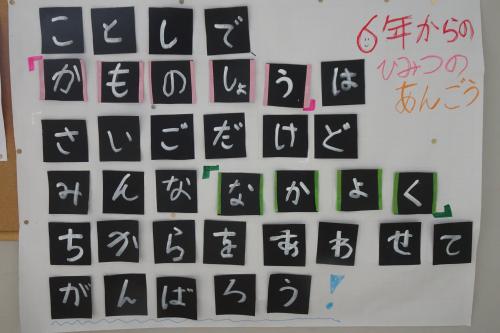 ことしで
「かものしょう」は
さいごだけど
みんな「なかよく」
ちからをあわせて
がんばろう!
6年からの
ひみつの
あんごう